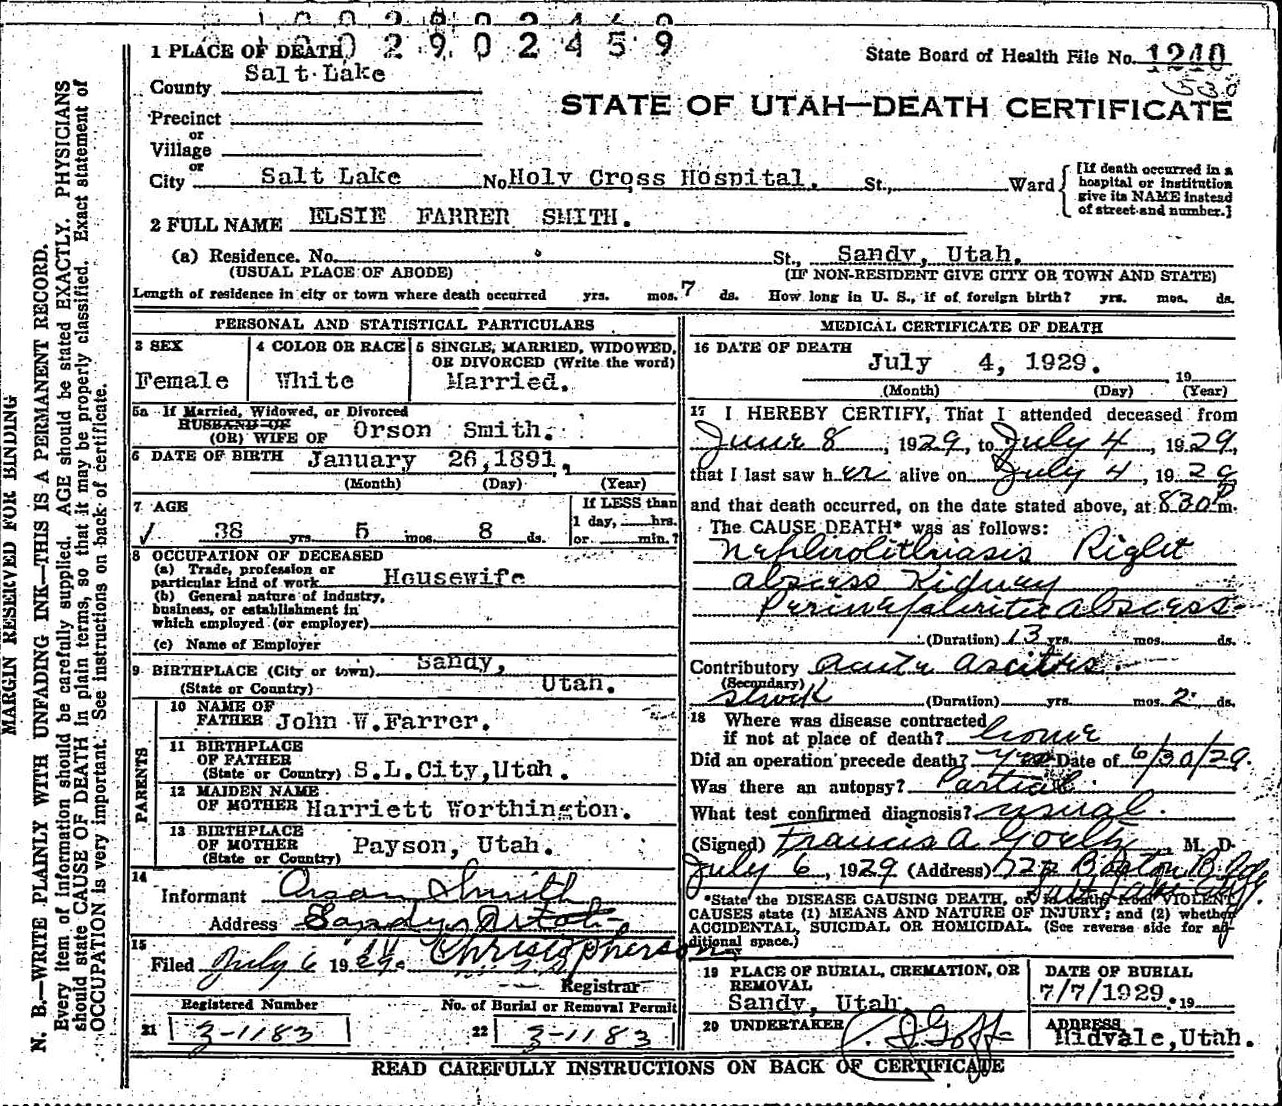 1002902459
1 PLACE OF DEATH
State Board of Health File No. 1240
530
County Salt Lake
STATE OF UTAH—DEATH CERTIFICATE
Precinct
or
Village
or
City Salt Lake No. Holy Cross Hospital. St., Ward
[If death occurred in a
hospital or institution
give its NAME instead
of street and number.]
2 FULL NAME ELSIE FARRER SMITH.
(a) Residence. No. St., Sandy, Utah.
(USUAL PLACE OF ABODE) (IF NON-RESIDENT GIVE CITY OR TOWN AND STATE)
Length of residence in city or town where death occurred yrs. mos. 7 ds. How long in U. S., if of foreign birth? yrs. mos. ds.
PERSONAL AND STATISTICAL PARTICULARS
3 SEX
Female
4 COLOR OR RACE
White
5 SINGLE, MARRIED, WIDOWED,
OR DIVORCED (Write the word)
Married.
5a If Married, Widowed, or Divorced
HUSBAND OF
(OR) WIFE OF Orson Smith.
6 DATE OF BIRTH January 26, 1891.
(Month) (Day) (Year)
7 AGE
38 yrs. 5 mos. 8 ds.
If LESS than
1 day, hrs.
or min.?
8 OCCUPATION OF DECEASED
(a) Trade, profession or
particular kind of work Housewife
(b) General nature of industry,
business, or establishment in
which employed (or employer)
(c) Name of Employer
9 BIRTHPLACE (City or town) Sandy,
(State or Country) Utah.
PARENTS
10 NAME OF
FATHER John W. Farrer.
11 BIRTHPLACE
OF FATHER
(State or Country) S.L.City, Utah.
12 MAIDEN NAME
OF MOTHER Harriett Worthington.
13 BIRTHPLACE
OF MOTHER
(State or Country) Payson, Utah.
14
Informant Orson Smith
Address Sandy Utah
15
Filed July 6 1929 Christopherson
Registrar
Registered Number
21 3-1183
No. of Burial or Removal Permit
22 3-1183
MEDICAL CERTIFICATE OF DEATH
16 DATE OF DEATH
July 4, 1929. 19
(Month) (Day) (Year)
17 I HEREBY CERTIFY, That I attended deceased from
June 8, 1929, to July 4, 1929,
that I last saw her alive on July 4, 1929
and that death occurred, on the date stated above, at 830 P m.
The CAUSE DEATH* was as follows:
Nephrolithiasis Right
abscess Kidney
Perinephritic abscess
(Duration) 13 yrs. mos. ds.
Contributory Acute Ascites
(Secondary)
shock (Duration) yrs. mos. 2 ds.
18 Where was disease contracted
if not at place of death? home
Did an operation precede death? yes Date of 6/30/29.
Was there an autopsy? Partial
What test confirmed diagnosis? usual.
(Signed) Francis A Goeltz, M. D.
July 6, 1929 (Address) 722 Boston Bldg
Salt Lake City
*State the DISEASE CAUSING DEATH, or, in deaths from VIOLENT
CAUSES state (1) MEANS AND NATURE OF INJURY; and (2) whether
ACCIDENTAL, SUICIDAL OR HOMICIDAL. (See reverse side for ad-
ditional space.)
19 PLACE OF BURIAL, CREMATION, OR
REMOVAL
Sandy, Utah.
DATE OF BURIAL
7/7/1929. 19
20 UNDERTAKER Goff
ADDRESS
Midvale, Utah.
READ CAREFULLY INSTRUCTIONS ON BACK OF CERTIFICATE
MARGIN RESERVED FOR BINDING
N. B.—WRITE PLAINLY WITH UNFADING INK—THIS IS A PERMANENT RECORD.
Every item of information should be carefully supplied. AGE should be stated EXACTLY. PHYSICIANS
should state CAUSE OF DEATH in plain terms, so that it may be properly classified. Exact statement of
OCCUPATION is very important. See instructions on back of certificate.